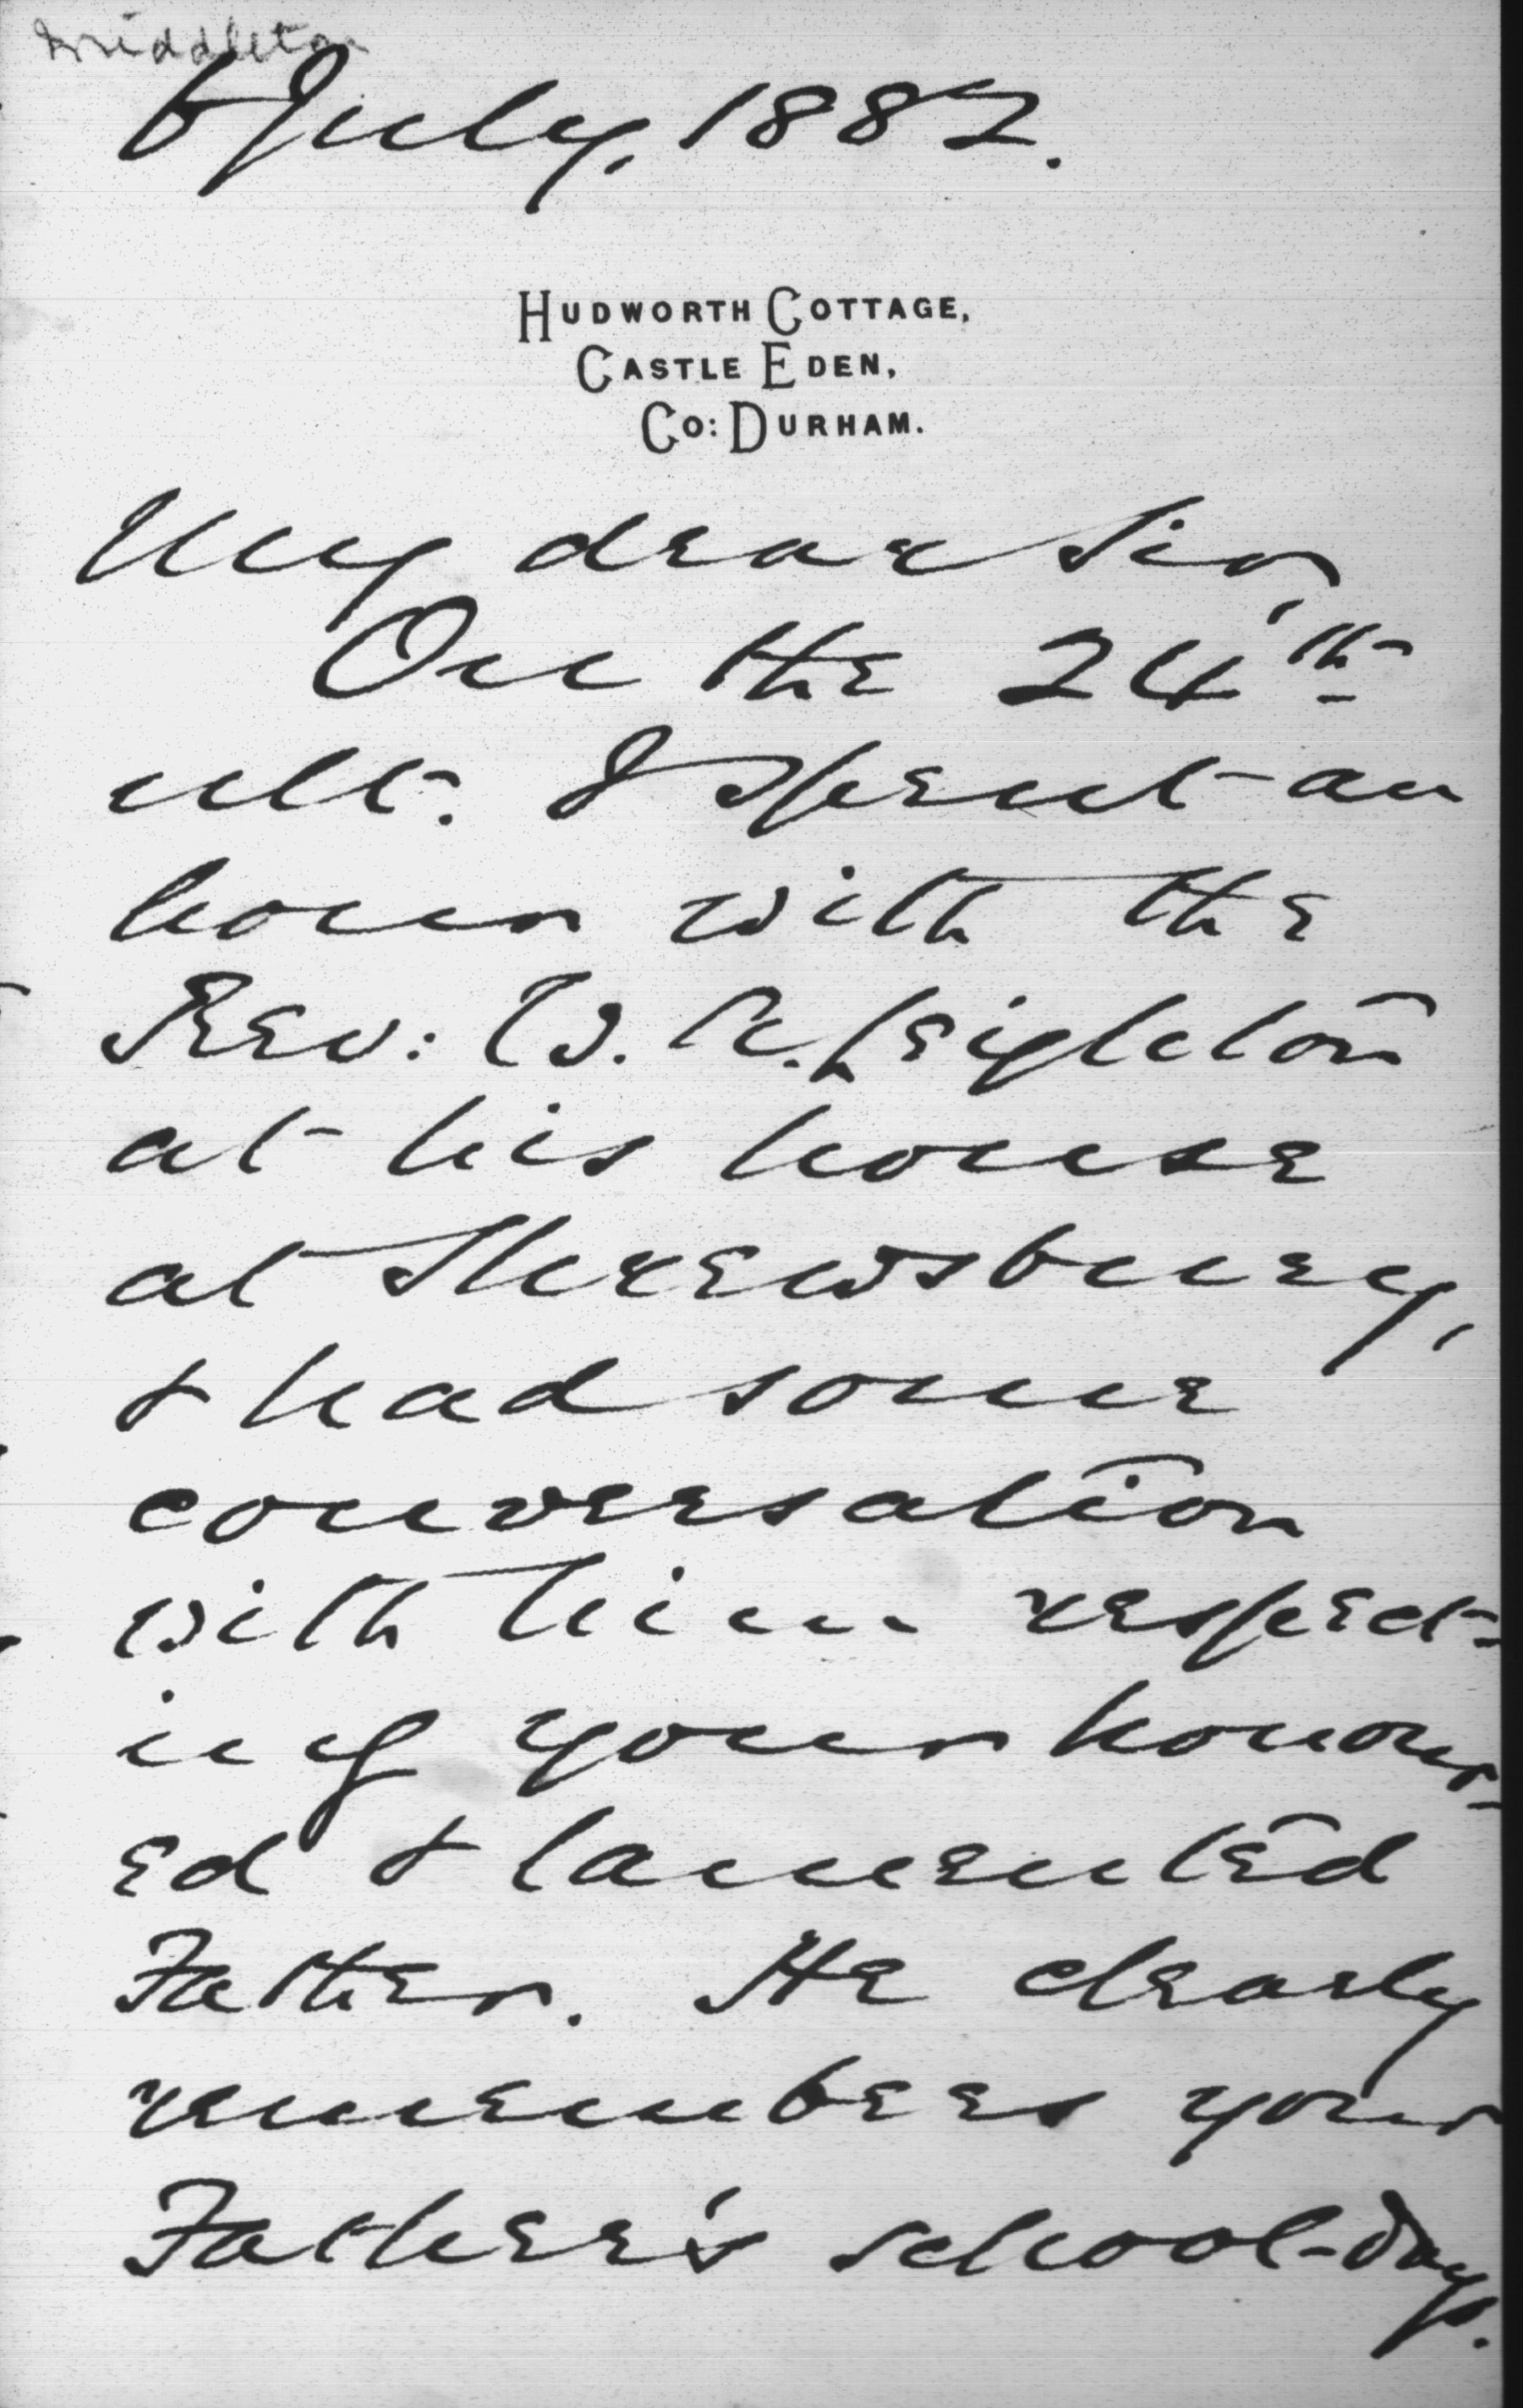 Middleton
6 July, 1882.
HUDWORTH COTTAGE,
CASTLE EDEN,
CO: DURHAM.
My dear Sir,
On the 24th
ult. I spent an
hour with the
Rev: W. A. Leighton
at his house
at Shrewsbury,
& had some
conversation
with him respect-
ing your honour-
ed & lamented
Father. He clearly
remembers your
Father's school-days.